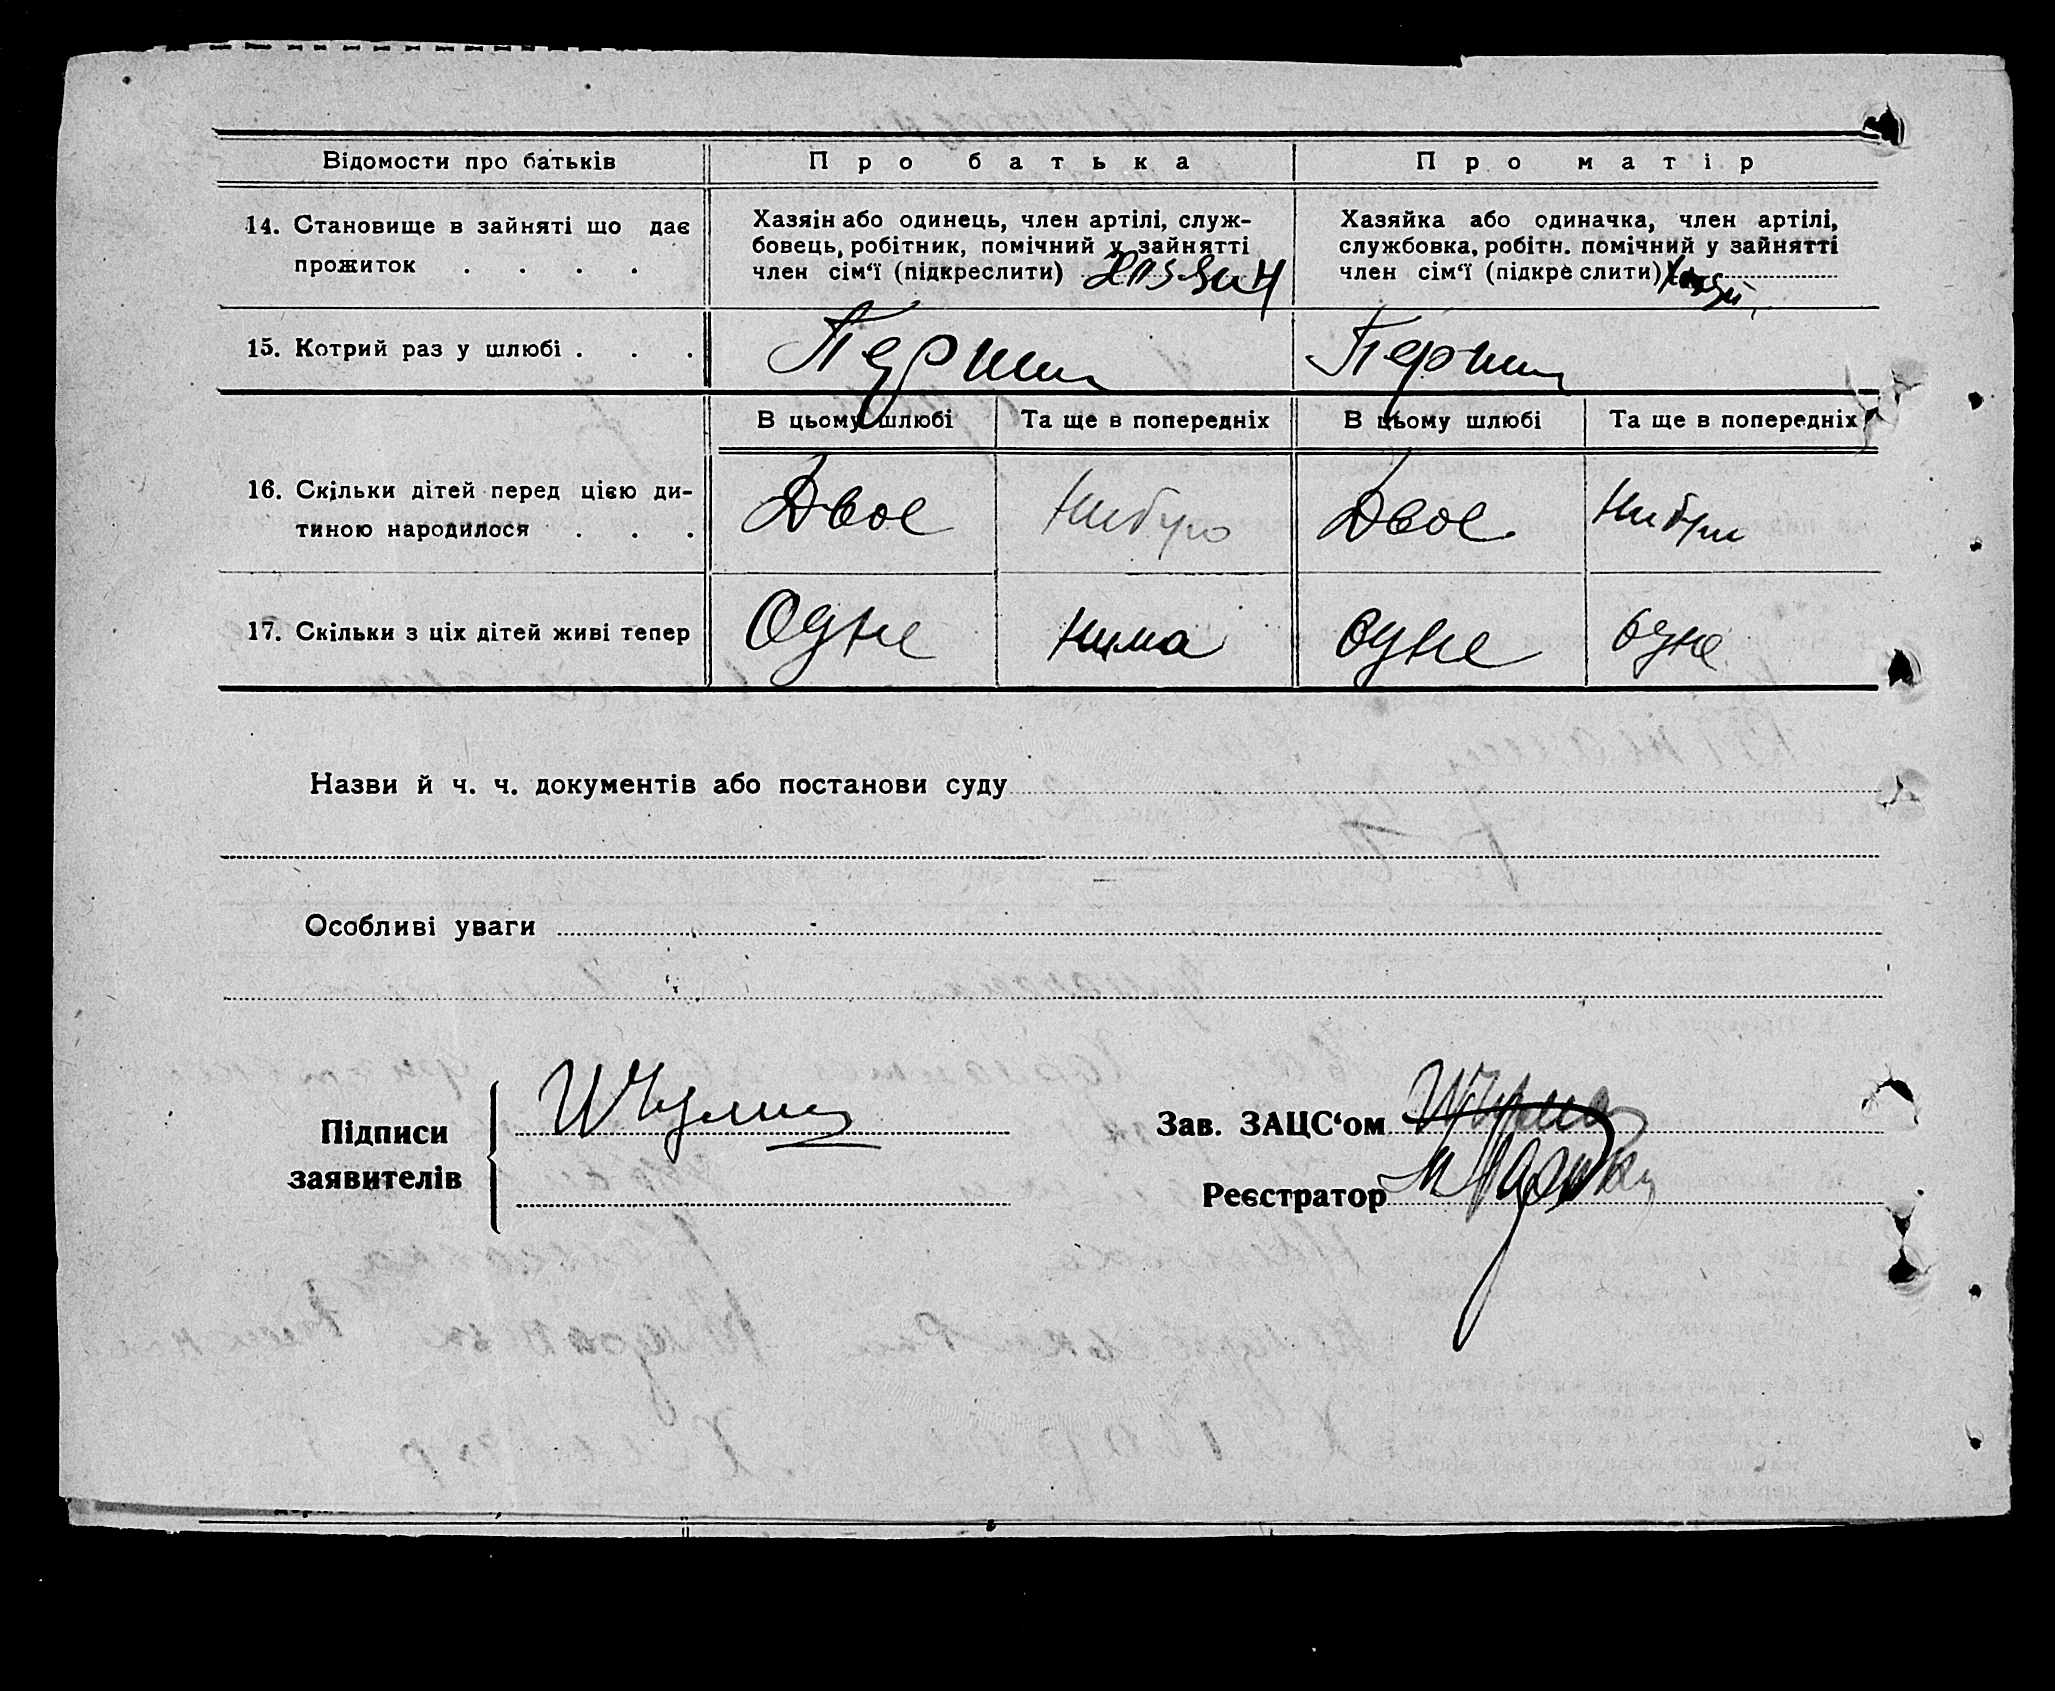 Відомости про батьків Про батька Про матір
14. Становище в зайняті що дає
прожиток . . . .
Хазяін або одинець, член артілі, служ-
бовець, робітник, помічний у зайнятті
член сім'ї (підкреслити) Хазяин
Хазяйка або одиначка, член артілі,
службовка, робітн. помічний у зайнятті
член сім'ї (підкреслити)
15. Котрий раз у шлюбі . . . Перши Перши
В цьому шлюбі Та ще в попередніх В цьому шлюбі Та ще в попередніх
16. Скільки дітей перед цією ди-
тиною народилося . . .
Двое Нибуло Двое
17. Скільки з ціх дітей живі тепер Одне нима одне одне
Назви й ч. ч. документів або постанови суду
Особливі уваги
Підписи
заявителів
Зав. ЗАЦС‘ом
Реєстратор